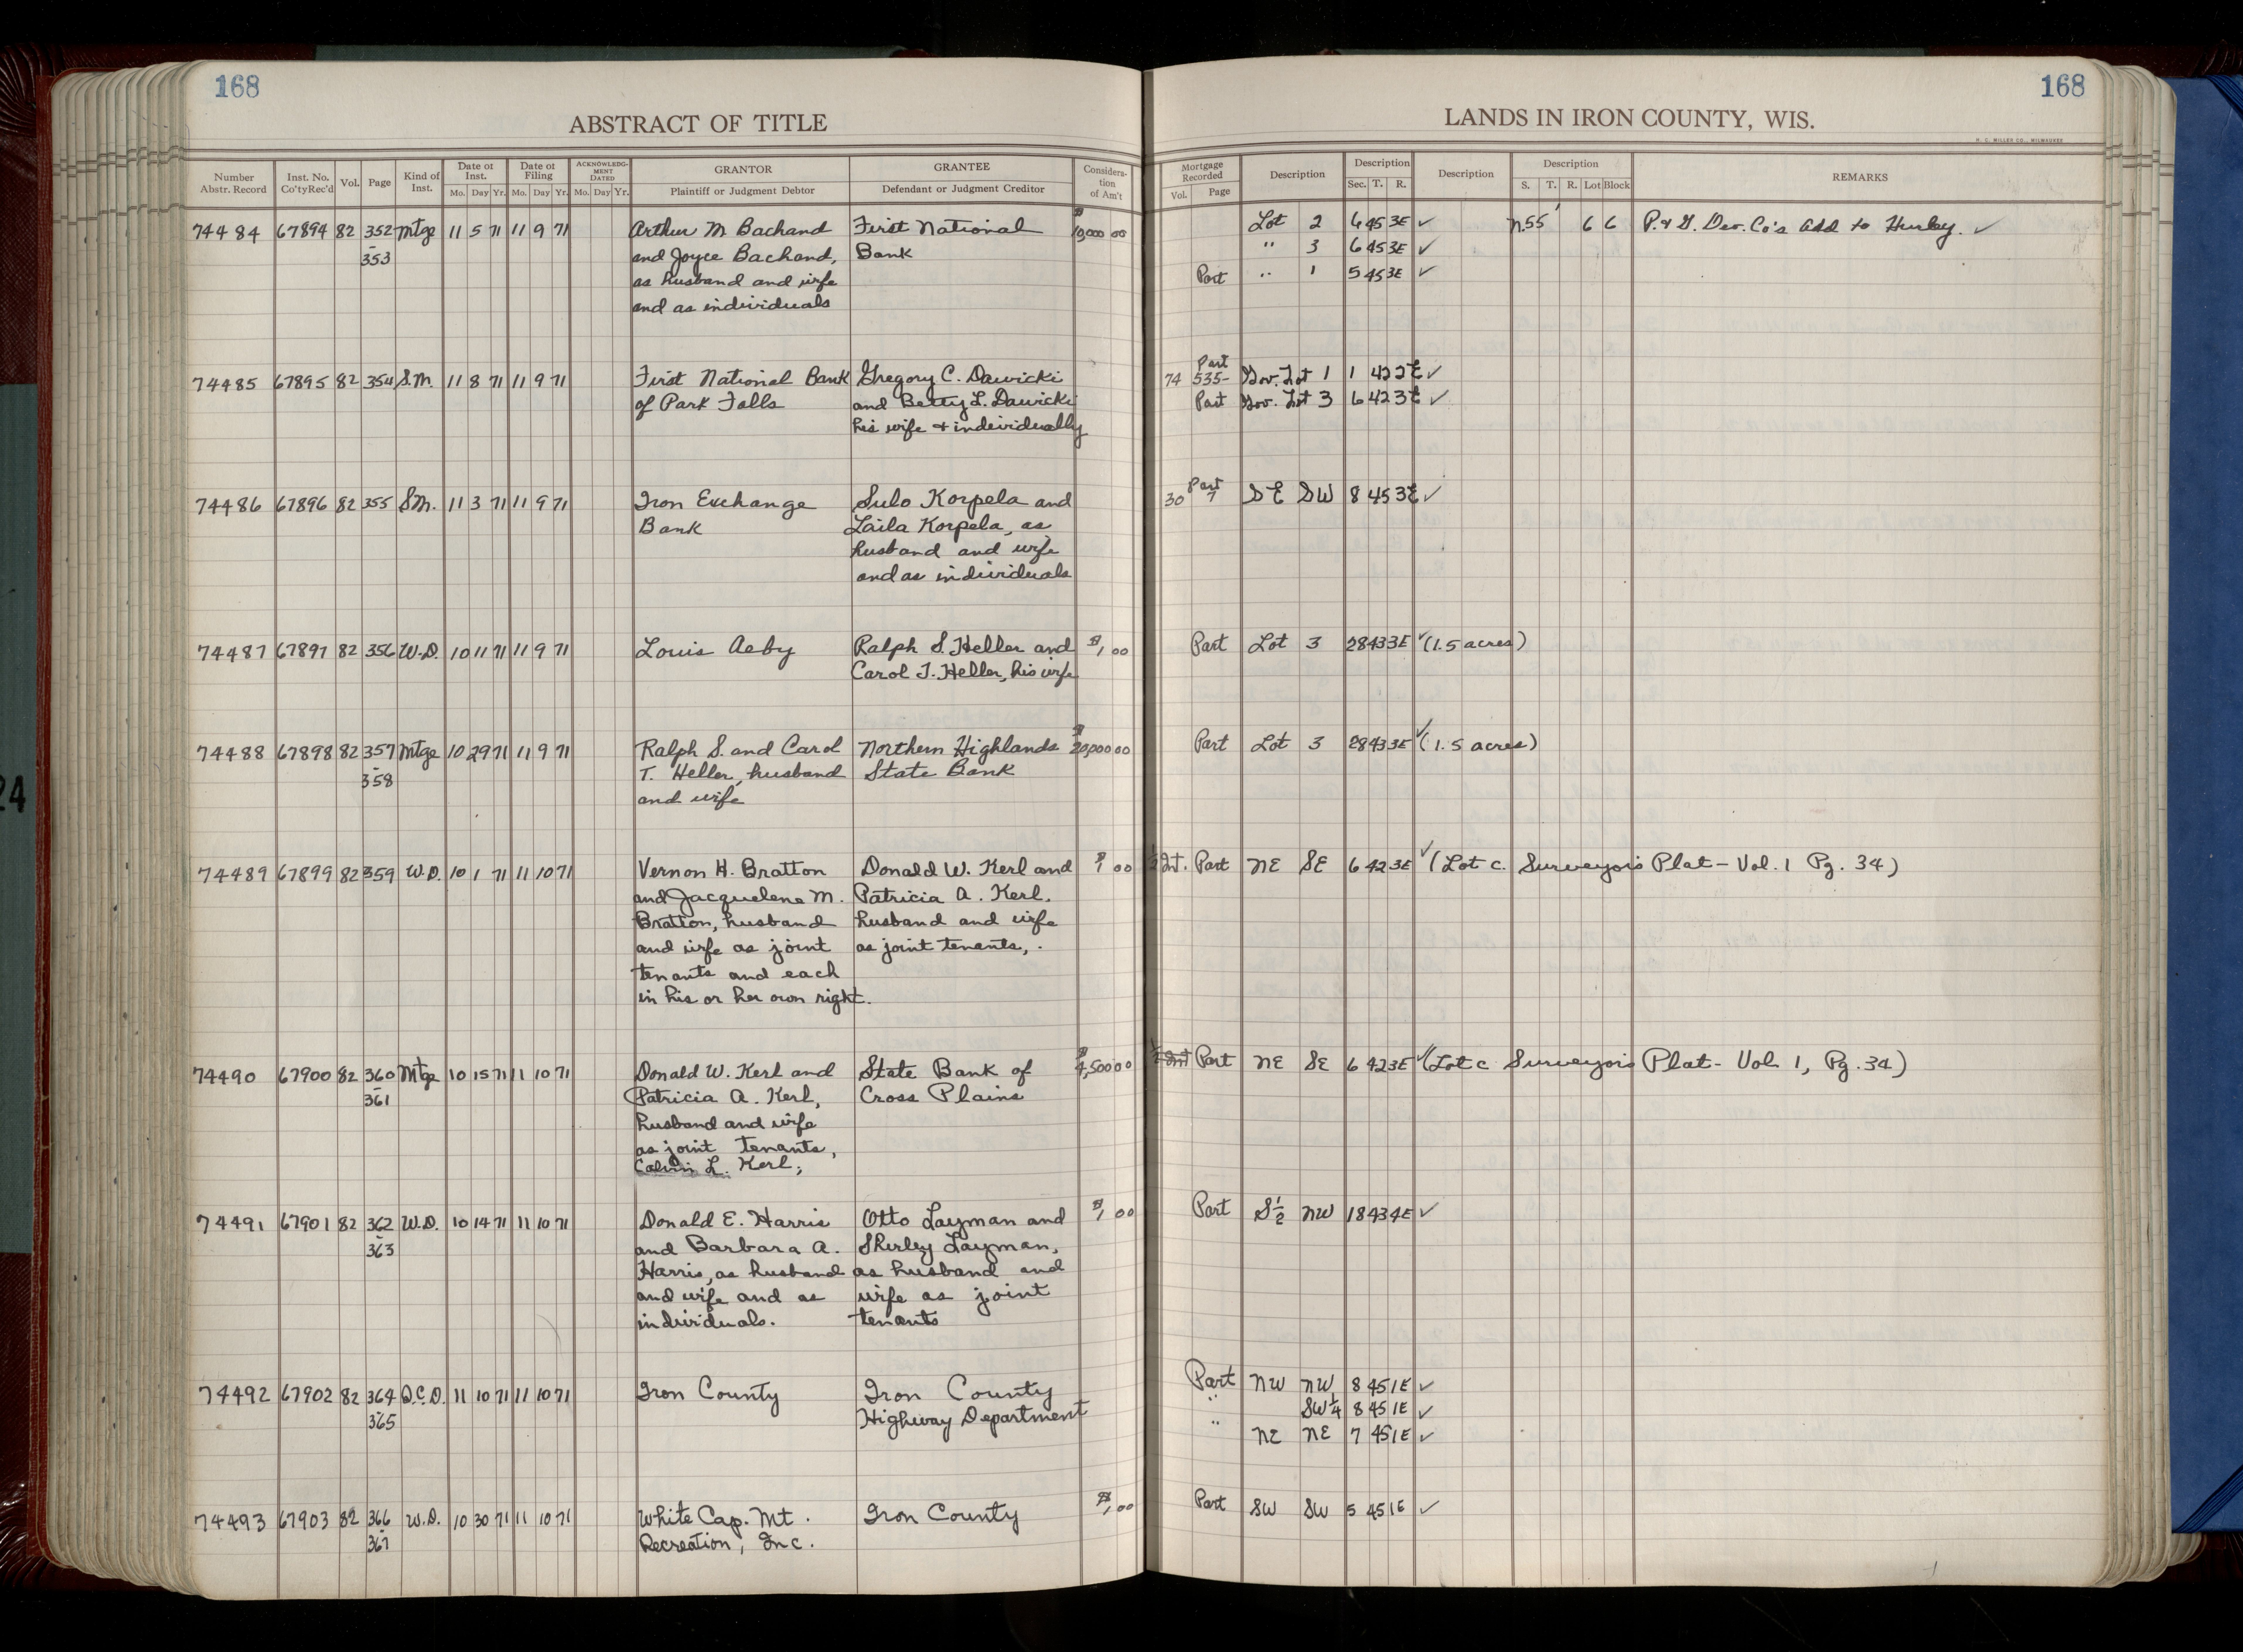 168
168
ABSTRACT OF TITLE
LANDS IN IRON COUNTY, WIS.
H. C. MILLER CO., MILWAUKEE
Number Abstr. Record
Inst. No. Co'tyRec'd
Vol.
Page
Kind of Inst.
Date of Inst. Mo. Day Yr.
Date of Filing Mo. Day Yr.
ACKNOWLEDGMENT DATED Mo. Day Yr.
GRANTOR Plaintiff or Judgment Debtor
GRANTEE Defendant or Judgment Creditor
Consideration of Am't
Mortgage Recorded Vol. Page
Description
Description Sec. T. R.
Description
Description S. T. R. Lot Block
REMARKS
74484 67894 82 352 Mtge 11 5 71 11 9 71 Arthur M. Bachand First National $10,000 00 Lot 2 6 45 3E ✓ N.55' 6 6 P. & G. Dev. Co's Add to Hurley. ✓
353 and Joyce Bachand, Bank " 3 6 45 3E ✓
as husband and wife Part " 1 5 45 3E ✓
and as individuals
74485 67895 82 354 S.M. 11 8 71 11 9 71 First National Bank Gregory C. Dawicki 74 535- Part Gov. Lot 1 1 42 2E ✓
of Park Falls and Betty L. Dawicki Part Gov. Lot 3 6 42 3E ✓
his wife + individually
74486 67896 82 355 S.M. 11 3 71 11 9 71 Iron Exchange Sulo Korpela and 30 7 Part SE SW 8 45 3E ✓
Bank Laila Korpela, as
husband and wife
and as individuals
74487 67897 82 356 W.D. 10 11 71 11 9 71 Louis Aeby Ralph S. Heller and $1,00 Part Lot 3 28 43 3E ✓ (1.5 acres)
Carol T. Heller, his wife
74488 67898 82 357 Mtge 10 29 71 11 9 71 Ralph S. and Carol Northern Highlands $20,000 00 Part Lot 3 28 43 3E ✓ (1.5 acres)
358 T. Heller, husband State Bank
and wife
74489 67899 82 359 W.D. 10 1 71 11 10 71 Vernon H. Bratton Donald W. Kerl and $1 00 Int. Part NE SE 6 42 3E ✓ (Lot C. Surveyor's Plat - Vol. 1 Pg. 34)
and Jacquelene M. Patricia A. Kerl,
Bratton, husband husband and wife
and wife as joint as joint tenants,.
tenants and each
in his or her own right.
74490 67900 82 360 Mtge 10 15 71 11 10 71 Donald W. Kerl and State Bank of $4,500 00 Part NE SE 6 42 3E ✓ (Lot C Surveyor's Plat - Vol 1, Pg. 34)
361 Patricia A. Kerl, Cross Plains
husband and wife
as joint tenants,
Calvin L. Kerl;
74491 67901 82 362 W.D. 10 14 71 11 10 71 Donald E. Harris Otto Layman and $1,00 Part S½ NW 18 43 4E ✓
363 and Barbara A. Shirley Layman,
Harris, as husband as husband and
and wife and as wife as joint
individuals. tenants
74492 67902 82 364 Q.C.D. 11 10 71 11 10 71 Iron County Iron County Part NW NW 8 45 1E ✓
365 Highway Department " SW¼ 8 45 1E ✓
" NE NE 7 45 1E ✓
74493 67903 82 366 W.D. 10 30 71 11 10 71 White Cap. Mt. Iron County $1,00 Part SW SW 5 45 1E ✓
367 Recreation, Inc.
24